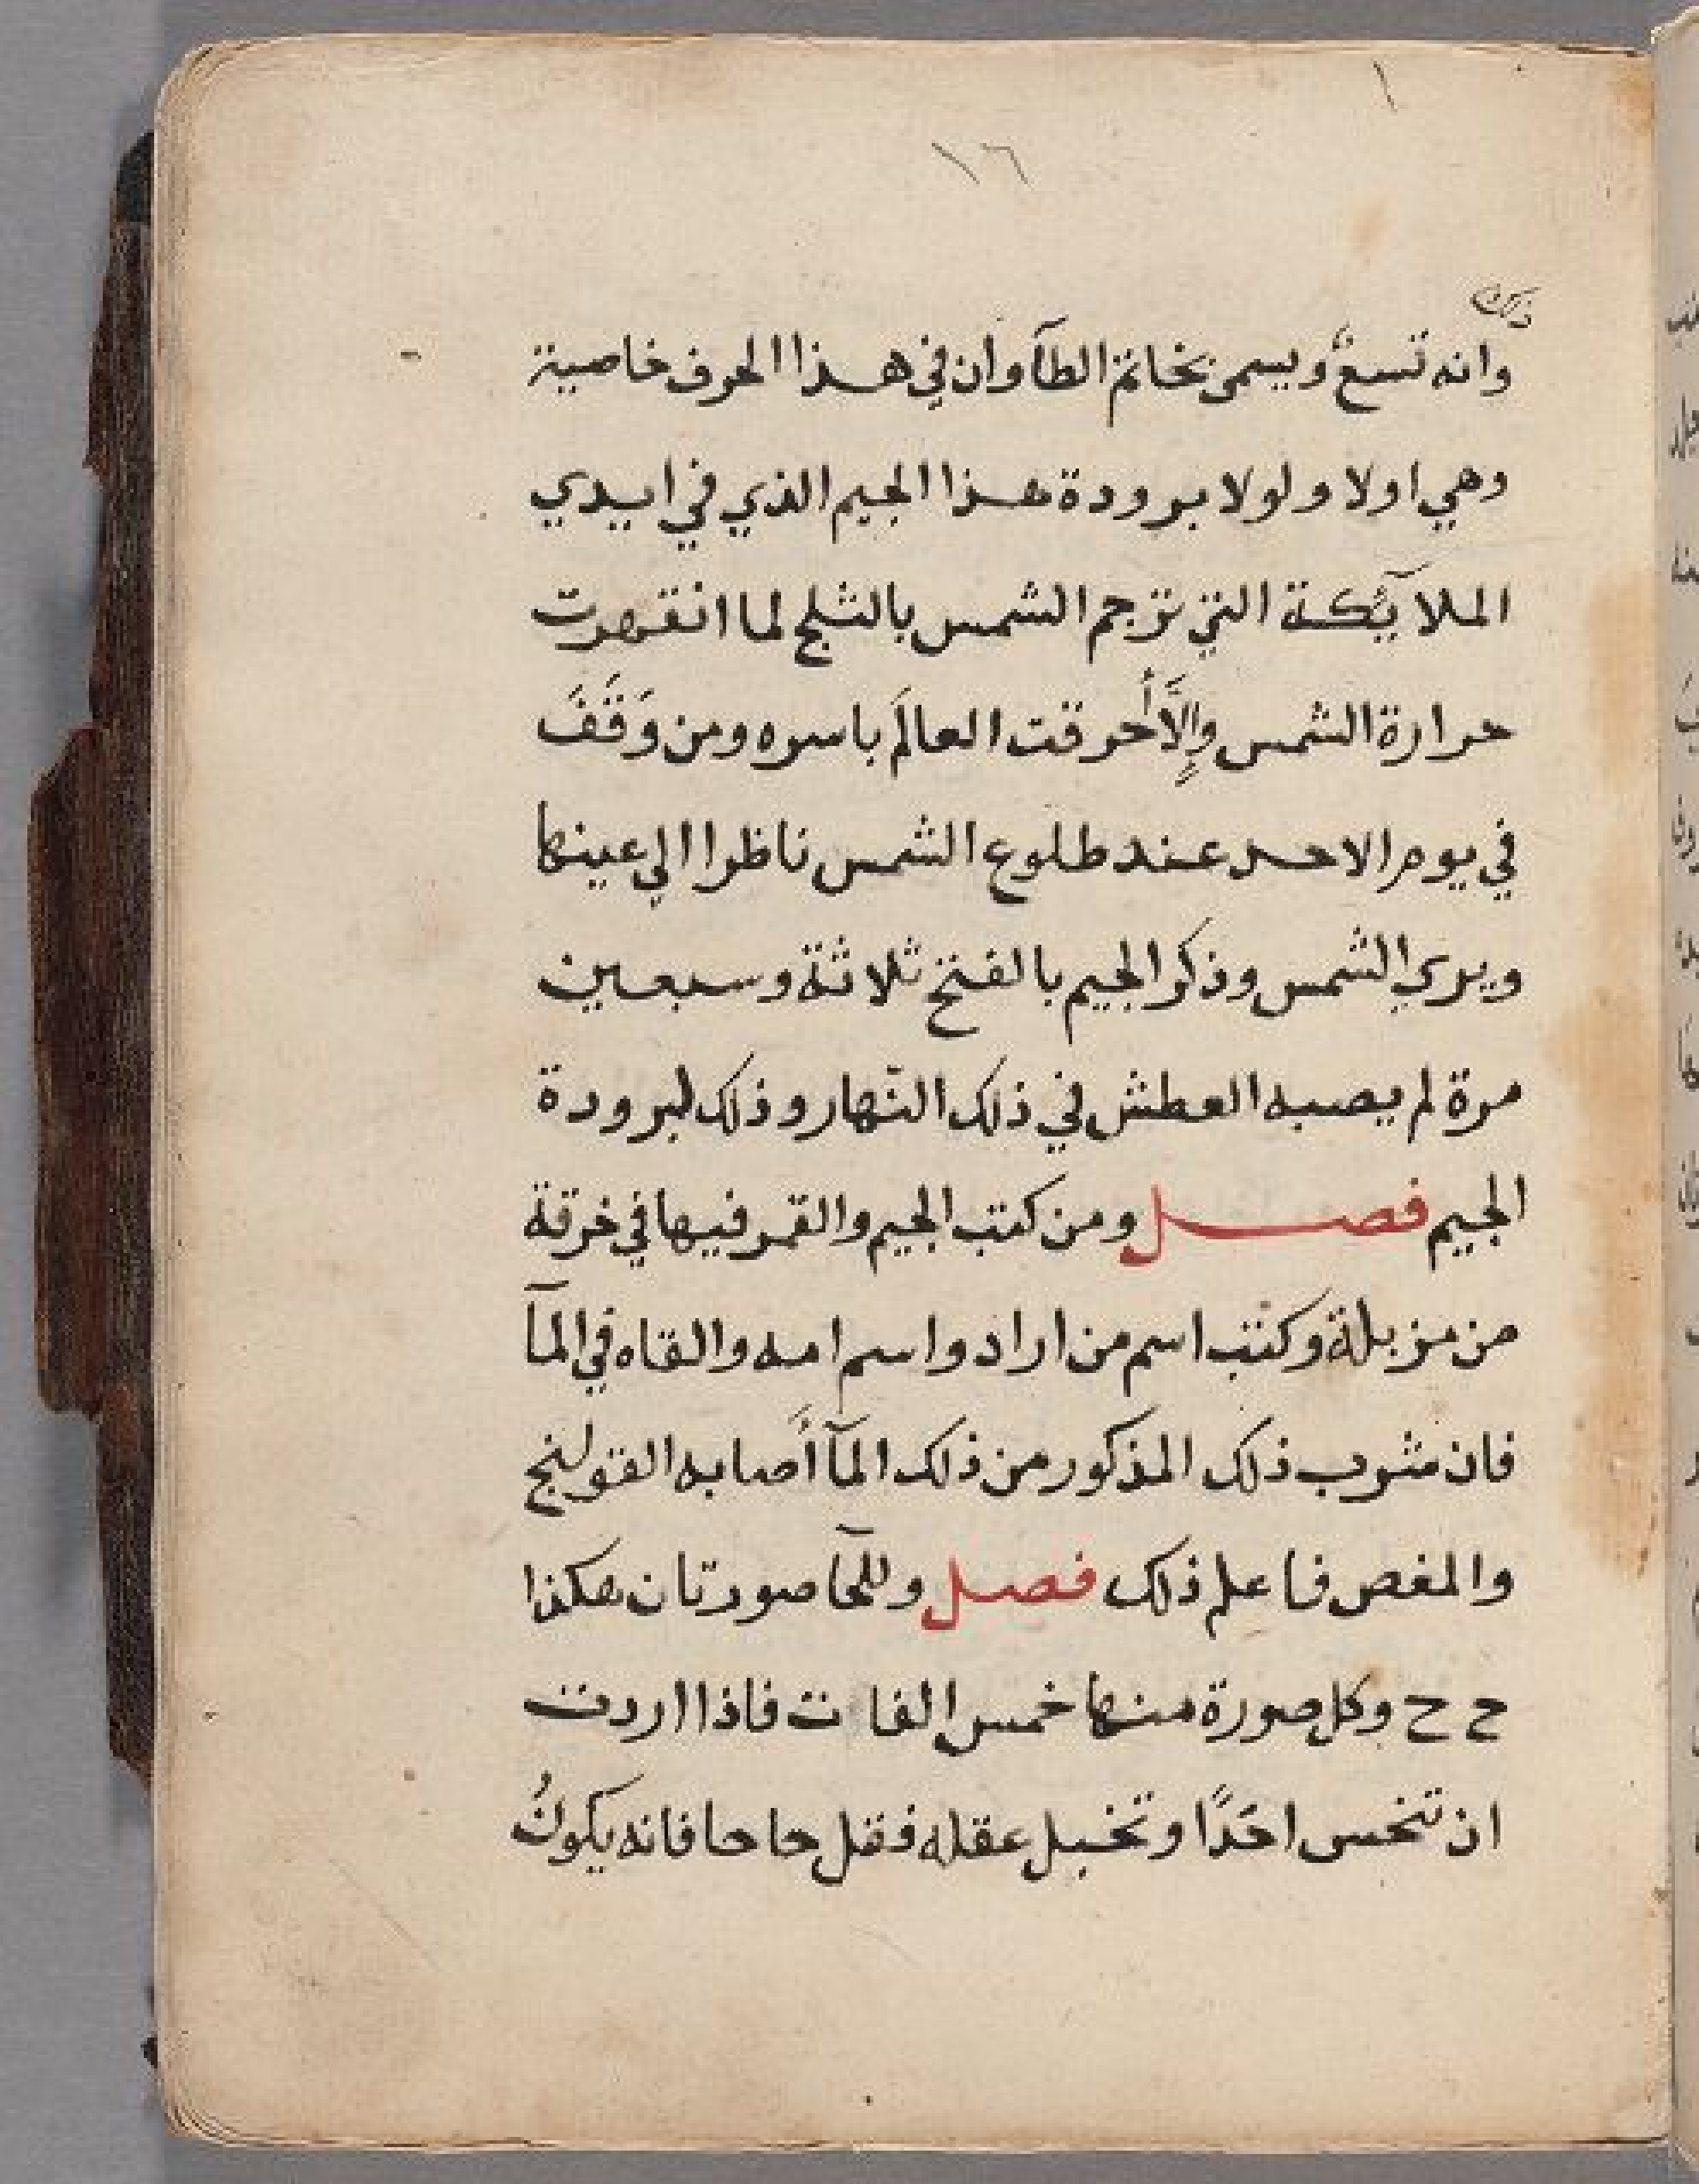 ١
١٦
وانه تسع ويسمى بخاتم الطآ وان في هذا الحرف خاصية
وهي اولا ولولا برودة هذا الجيم الذي في ايدي
الملآئكة التي ترجم الشمس بالثلج لما انقهرت
حرارة الشمس وإِلَّا أَحرقت العالَم باسره ومن وَقَفَ
في يوم الاحد عند طلوع الشمس ناظرا الي عينها
ويري الشمس وذكر الجيم بالفتح ثلاثة وسبعين
مرة لم يصبه العطش في ذلك النّهار وذلك لبرودة
الجيم فصل ومن كتب الجيم والقمر فيها في خرقة
من مزبلة وكتب اسم من اراد واسم امه والقاه في المآ
فان شرب ذلك المذكور من ذلك المآ أَصابه القولنج
والمغص فاعلم ذلك فصل وللحآ صورتان هكذا
ح ح وكل صورة منها خمس الفات فاذا اردت
ان تنحس احَدًا وتخبل عقله فقل حا حا فانه يكونُ